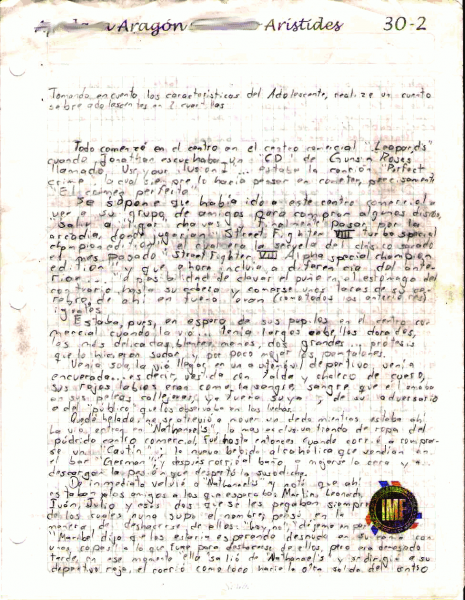 Aragón Aristides 30-2
Tomando en cuenta las características del Adolescente, realize un cuento
sobre adolescentes en 2 cuartillas
Todo comenzó en el centro en el centro comercial "Leopards"
cuando Jonathan escuchaba un "CD" de Guns n Roses
llamado Use your ilusion I ... estaba la canción "Perfect
crime" la cual fue que lo hacía pensar en cometer, precisamente
"El crimen perfecto"
Se supone que había ido a este centro comercial a
ver a su grupo de amigos para comprar algunos discos,
salir a ligar chavas y finalmente pasar por la
arcadia donde jugarían Street Fighter VIII turbo special
champion edition, el cual era la secuela del clásico sacado
el mes pasado Street Fighter VII Alpha special champion
edition y que ahora incluía a diferencia del ante
rior... la posibilidad de clavar el puño en el estómago del
contrario hasta su cabeza y comerse unos tacos de su ce
rebro, de ahí en fuera eran (como todos los anteriores)
iguales.
Estaba, pues, en espera de sus pupilos en el centro co-
mercial cuando la vió... tenía largos cabellos dorados,
las más delicadas, blancas manos, dos grandes ... protesis
que lo hicieron sudar, y por poco mojar los pantalones.
Venía sola, la vió llegar en un automóvil deportivo, venía
encuerada... es decir vestida con falda y chaleco de cuero,
sus rojos labios eran como la sangre, sangre que él amaba
en sus peleas callejeras, ya fuera suya, o de su adversario
o del "público" que los observaba en las luchas.
Quedó helado, no se atrevió a mover un dedo mientras estaba ahí.
La vió entrar a "Nathaniel's", la más exclusiva tienda de ropa del
púdrido centro comercial. Fué hasta entonces cuando corrió a comprar-
se un "Cautín", la nueva bebida alcohólica que vendían en
bar "German", después corrió al baño a mojarse la cara y a
descargar la pasión que despertó la susodicha.
De inmediato volvió a "Nathaniel's" y notó que ahí
estaban los amigos a los que esperaba: Martin, Leonardo,
Iván, Julio y estos dos que se les pegaban siempre
de los cuales no supo un nombre, pensó en una
manera de deshacerse de ellos: "hoy no", "déjeme en paz"
"Maribel dijo que los estaría esperando desnuda en su cama con
unas copas" a lo que fué para deshacerse de ellos, pero era demasiado
tarde, en ese momento ella salió de "Nathaniel's" y se dirigió a su
deportivo rojo, él corrió como loco hacia la otra salida del centro
IMF